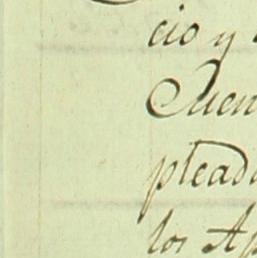 cio y
Cuen
plead
los Ap